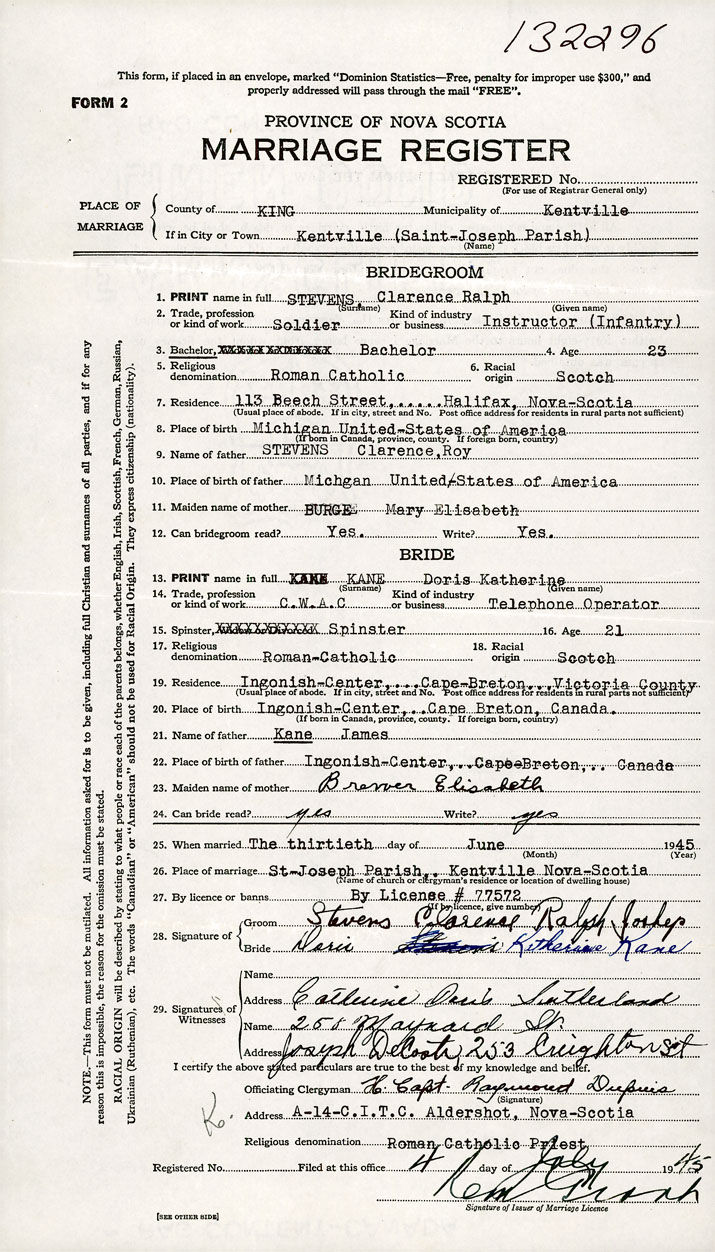 132296
This form, if placed in an envelope, marked "Dominion Statistics—Free, penalty for improper use $300," and
properly addressed will pass through the mail "FREE".
FORM 2
PROVINCE OF NOVA SCOTIA
MARRIAGE REGISTER
REGISTERED No.
(For use of Registrar General only)
PLACE OF MARRIAGE
County of KING Municipality of Kentville
If in City or Town Kentville (Saint-Joseph Parish)
(Name)
BRIDEGROOM
1. PRINT name in full STEVENS, Clarence Ralph
(Surname) (Given name)
2. Trade, profession or kind of work Soldier Kind of industry or business Instructor (Infantry)
3. Bachelor, XXXXXXXXXXXXXXX Bachelor 4. Age 23
5. Religious denomination Roman Catholic 6. Racial origin Scotch
7. Residence 113 Beech Street,.....Halifax, Nova-Scotia
(Usual place of abode. If in city, street and No. Post office address for residents in rural parts not sufficient)
8. Place of birth Michigan United-States of America
(If born in Canada, province, county. If foreign born, country)
9. Name of father STEVENS Clarence,Roy
10. Place of birth of father Michgan United/States of America
11. Maiden name of mother BURGE Mary Elisabeth
12. Can bridegroom read? Yes. Write? Yes.
BRIDE
13. PRINT name in full KANE KANE Doris Katherine
(Surname) (Given name)
14. Trade, profession or kind of work C.W.A.C Kind of industry or business Telephone Operator
15. Spinster, Widow or Divorced Spinster 16. Age 21
17. Religious denomination Roman-Catholic 18. Racial origin Scotch
19. Residence Ingonish-Center,...Cape-Breton,..Victoria County
(Usual place of abode. If in city, street and No. Post office address for residents in rural parts not sufficient)
20. Place of birth Ingonish-Center,..Cape Breton, Canada.
(If born in Canada, province, county. If foreign born, country)
21. Name of father Kane James
22. Place of birth of father Ingonish-Center,..Cape-Breton,.. Canada
23. Maiden name of mother Brewer Elisabeth
24. Can bride read? yes Write? yes
25. When married The thirtieth day of June 1945
(Month) (Year)
26. Place of marriage St-Joseph Parish,. Kentville Nova-Scotia
(Name of church or clergyman's residence or location of dwelling house)
27. By licence or banns By License # 77572
(If by licence, give number)
28. Signature of
Groom Stevens Clarence Ralph Joshep
Bride Doris Katherine Kane
29. Signatures of Witnesses
Name
Address Catherine Doris Sutherland
Name 258 Maynard St.
Address Joseph DeCoste, 253 Creighton St
I certify the above stated particulars are true to the best of my knowledge and belief.
Officiating Clergyman H. Capt. Raymond Dupuis
(Signature)
Address A-14-C.I.T.C. Aldershot, Nova-Scotia
Religious denomination Roman Catholic Priest
Registered No. Filed at this office 4 day of July 1945
Signature of Issuer of Marriage Licence
[SEE OTHER SIDE]
NOTE.—This form must not be mutilated. All information asked for is to be given, including full Christian and surnames of all parties, and if for any
reason this is impossible, the reason for the omission must be stated.
RACIAL ORIGIN will be described by stating to what people or race each of the parents belongs, whether English, Irish, Scottish, French, German, Russian,
Ukrainian (Ruthenian), etc. The words "Canadian" or "American" should not be used for Racial Origin. They express citizenship (nationality).